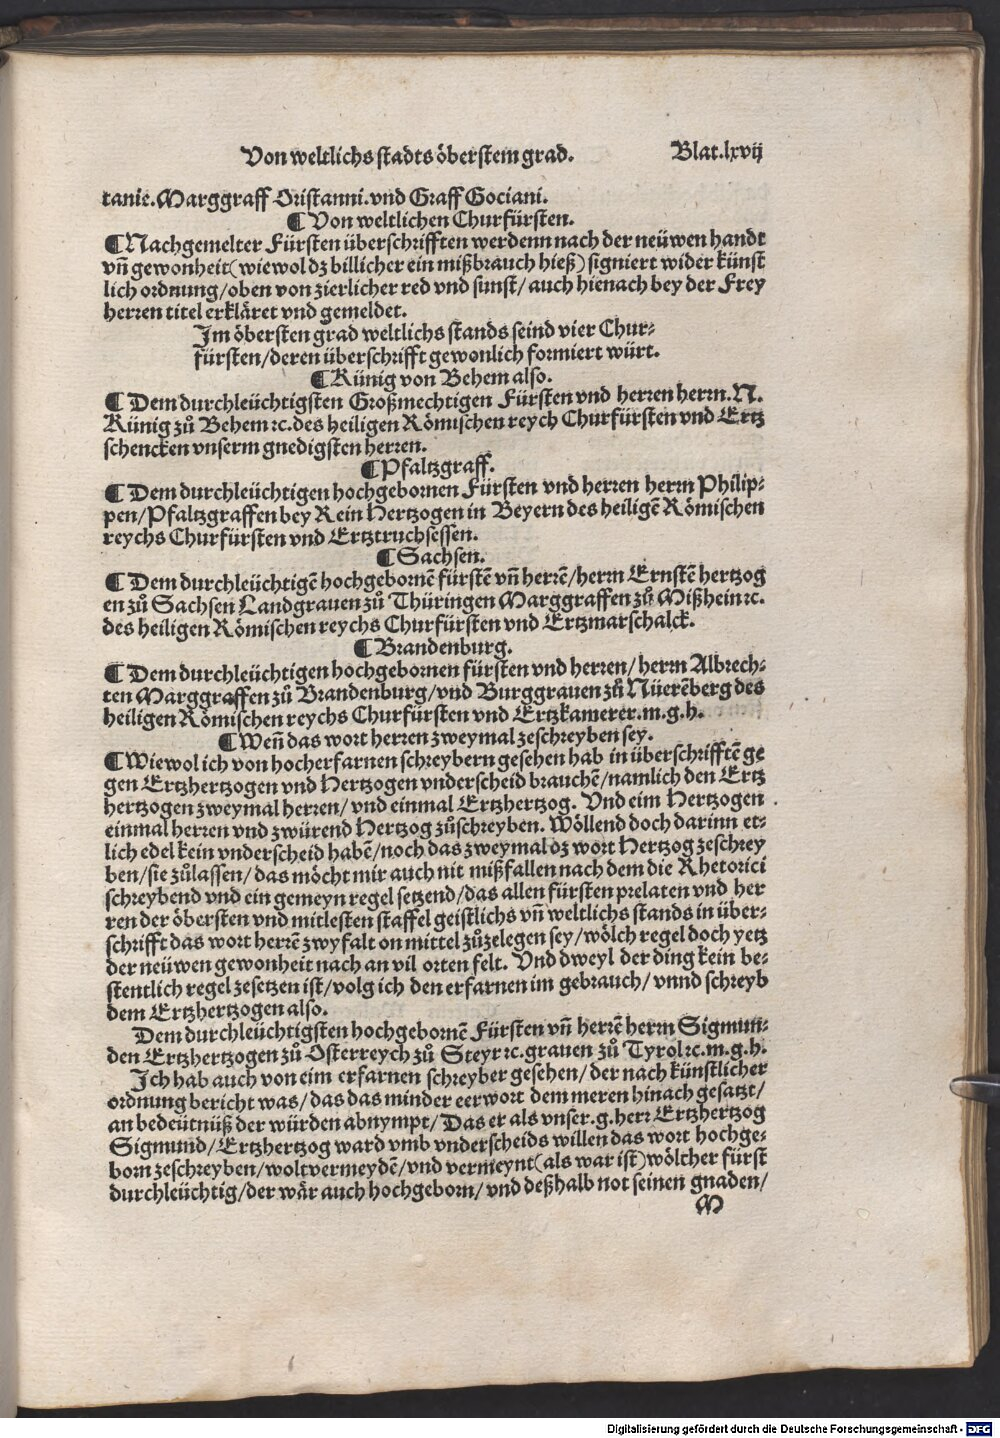 Von weltlichs stadts öberstem grad. Blat. lxvij
tanie. Marggraff Oristanni. vnd Graff Gociani.
¶ Von weltlichen Churfürsten.
¶ Nachgemelter Fürsten überschrifften werdenn nach der neüwen handt
vn̄ gewonheit (wiewol dz billicher ein mißbrauch hieß) signiert wider künst
lich ordnung / oben von zierlicher red vnd sunst / auch hienach bey der Frey
herren titel erkläret vnd gemeldet.
Im öbersten grad weltlichs stands seind vier Chur⸗
fürsten / deren überschrifft gewonlich formiert würt.
¶ Künig von Behem also.
¶ Dem durchleüchtigsten Großmechtigen Fürsten vnd herren herrn. N.
Künig zů Behem ꝛc. des heiligen Römischen reych Churfürsten vnd Ertz
schencken vnserm gnedigsten herren.
¶ Pfaltzgraff.
¶ Dem durchleüchtigen hochgebornen Fürsten vnd herren herrn Philip⸗
pen / Pfaltzgraffen bey Rein Hertzogen in Beyern des heiligē Römischen
reychs Churfürsten vnd Ertztruchsessen.
¶ Sachsen.
¶ Dem durchleüchtigē hochgebornē fürstē vn̄ herrē / herrn Ernstē hertzog
en zů Sachsen Landgrauen zů Thüringen Marggraffen zů Mißhein ꝛc.
des heiligen Römischen reychs Churfürsten vnd Ertzmarschalck.
¶ Brandenburg.
¶ Dem durchleüchtigen hochgebornen fürsten vnd herren / herrn Albrech⸗
ten Marggraffen zů Brandenburg / vnd Burggrauen zů Nüerēberg des
heiligen Römischen reychs Churfürsten vnd Ertzkamerer. m. g. h.
¶ Wen̄ das wort herren zweymal zeschreyben sey.
¶ Wiewol ich von hocherfarnen schreybern gesehen hab in überschrifftē ge
gen Ertzhertzogen vnd Hertzogen vnderscheid brauchē / namlich den Ertz
hertzogen zweymal herren / vnd einmal Ertzhertzog. Vnd eim Hertzogen
einmal herren vnd zwürend Hertzog zůschreyben. Wöllend doch darinn et⸗
lich edel kein vnderscheid habē / noch das zweymal dz wort Hertzog zeschrey
ben / sie zůlassen / das möcht mir auch nit mißfallen nach dem die Rhetorici
schreybend vnd ein gemeyn regel setzend / das allen fürsten prelaten vnd her
ren der öbersten vnd mitlesten staffel geistlichs vn̄ weltlichs stands in über⸗
schrifft das wort herrē zwyfalt on mittel zůzelegen sey / wölch regel doch yetz
der neüwen gewonheit nach an vil orten felt. Vnd dweyl der ding kein be⸗
stentlich regel zesetzen ist / volg ich den erfarnen im gebrauch / vnnd schreyb
dem Ertzhertzogen also.
Dem durchleüchtigsten hochgebornē Fürsten vn̄ herrē herrn Sigmun⸗
den Ertzhertzogen zů Osterreych zů Steyr ꝛc. grauen zů Tyrol ꝛc. m. g. h.
Ich hab auch von eim erfarnen schreyber gesehen / der nach künstlicher
ordnung bericht was / das das minder eerwort dem meren hinach gesatzt /
an bedeütnüß der würden abnympt / Das er als vnser. g. herr Ertzhertzog
Sigmund / Ertzhertzog ward vmb vnderscheids willen das wort hochge⸗
born zeschreyben / wolt vermeydē / vnd vermeynt (als war ist) wölcher fürst
durchleüchtig / der wär auch hochgeborn / vnd deßhalb not seinen gnaden /
M
Digitalisierung gefördert durch die Deutsche Forschungsgemeinschaft - DFG